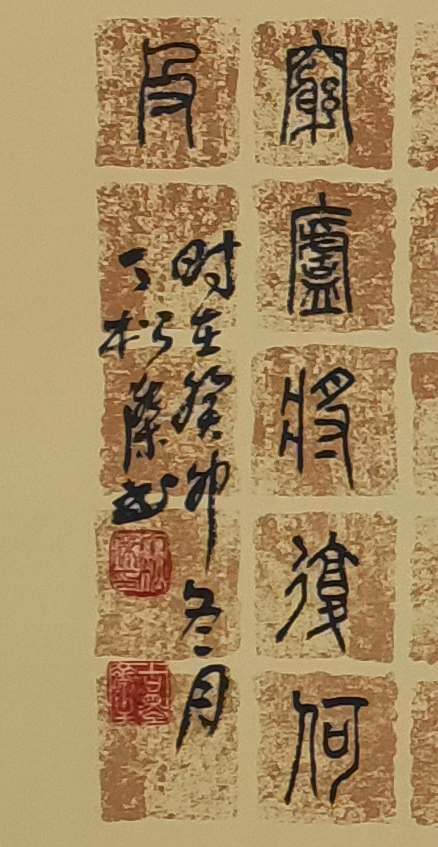 窮廬將復何
及
时在癸卯冬月
丁松荣书